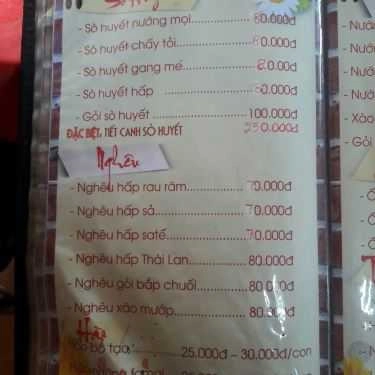 - Sò huyết nướng mọi 80.000đ
- Sò huyết cháy tỏi 80.000đ
- Sò huyết gang me 80.00đ
- Sò huyết hấp 80.000đ
- Gỏi sò huyết 100.000đ
ĐẶC BIỆT, TIẾT CANH SÒ HUYẾT 250.000đ
Nghêu
- Nghêu hấp rau răm 70.000đ
- Nghêu hấp sả 70.000đ
- Nghêu hấp satế 70.000đ
- Nghêu hấp Thái Lan 80.000đ
- Nghêu gỏi bắp chuối 80.000đ
- Nghêu xào mướp 80.000đ
25.000đ – 30.000đ/con
- Nướ
- Nướ
- Nướ
- Xào
- Gỏi